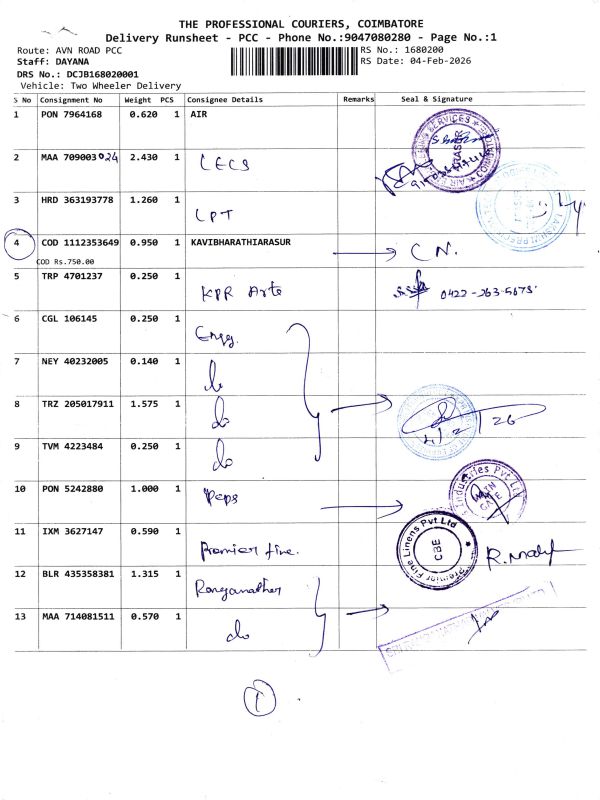 THE PROFESSIONAL COURIERS, COIMBATORE
Delivery Runsheet - PCC - Phone No.:9047080280 - Page No.:1
Route: AVN ROAD PCC
RS No.: 1680200
Staff: DAYANA
RS Date: 04-Feb-2026
DRS No.: DCJB168020001
Vehicle: Two Wheeler Delivery
S No Consignment No Weight PCS Consignee Details Remarks Seal & Signature
1 PON 7964168 0.620 1 AIR
2 MAA 709003024 2.430 1 LECS
3 HRD 363193778 1.260 1 LPT
4 COD 1112353649 0.950 1 KAVIBHARATHIARASUR C N.
COD Rs.750.00
5 TRP 4701237 0.250 1 KPR Arts 0422-263-5675
6 CGL 106145 0.250 1 Engg.
7 NEY 40232005 0.140 1 do
8 TRZ 205017911 1.575 1 do 4/2/26
9 TVM 4223484 0.250 1 do
10 PON 5242880 1.000 1 Peps
Industries Pvt Ltd
11 IXM 3627147 0.590 1 Premier fine.
Premier Fine Linens Pvt Ltd
CBE
12 BLR 435358381 1.315 1 Ranganather
13 MAA 714081511 0.570 1 do
1